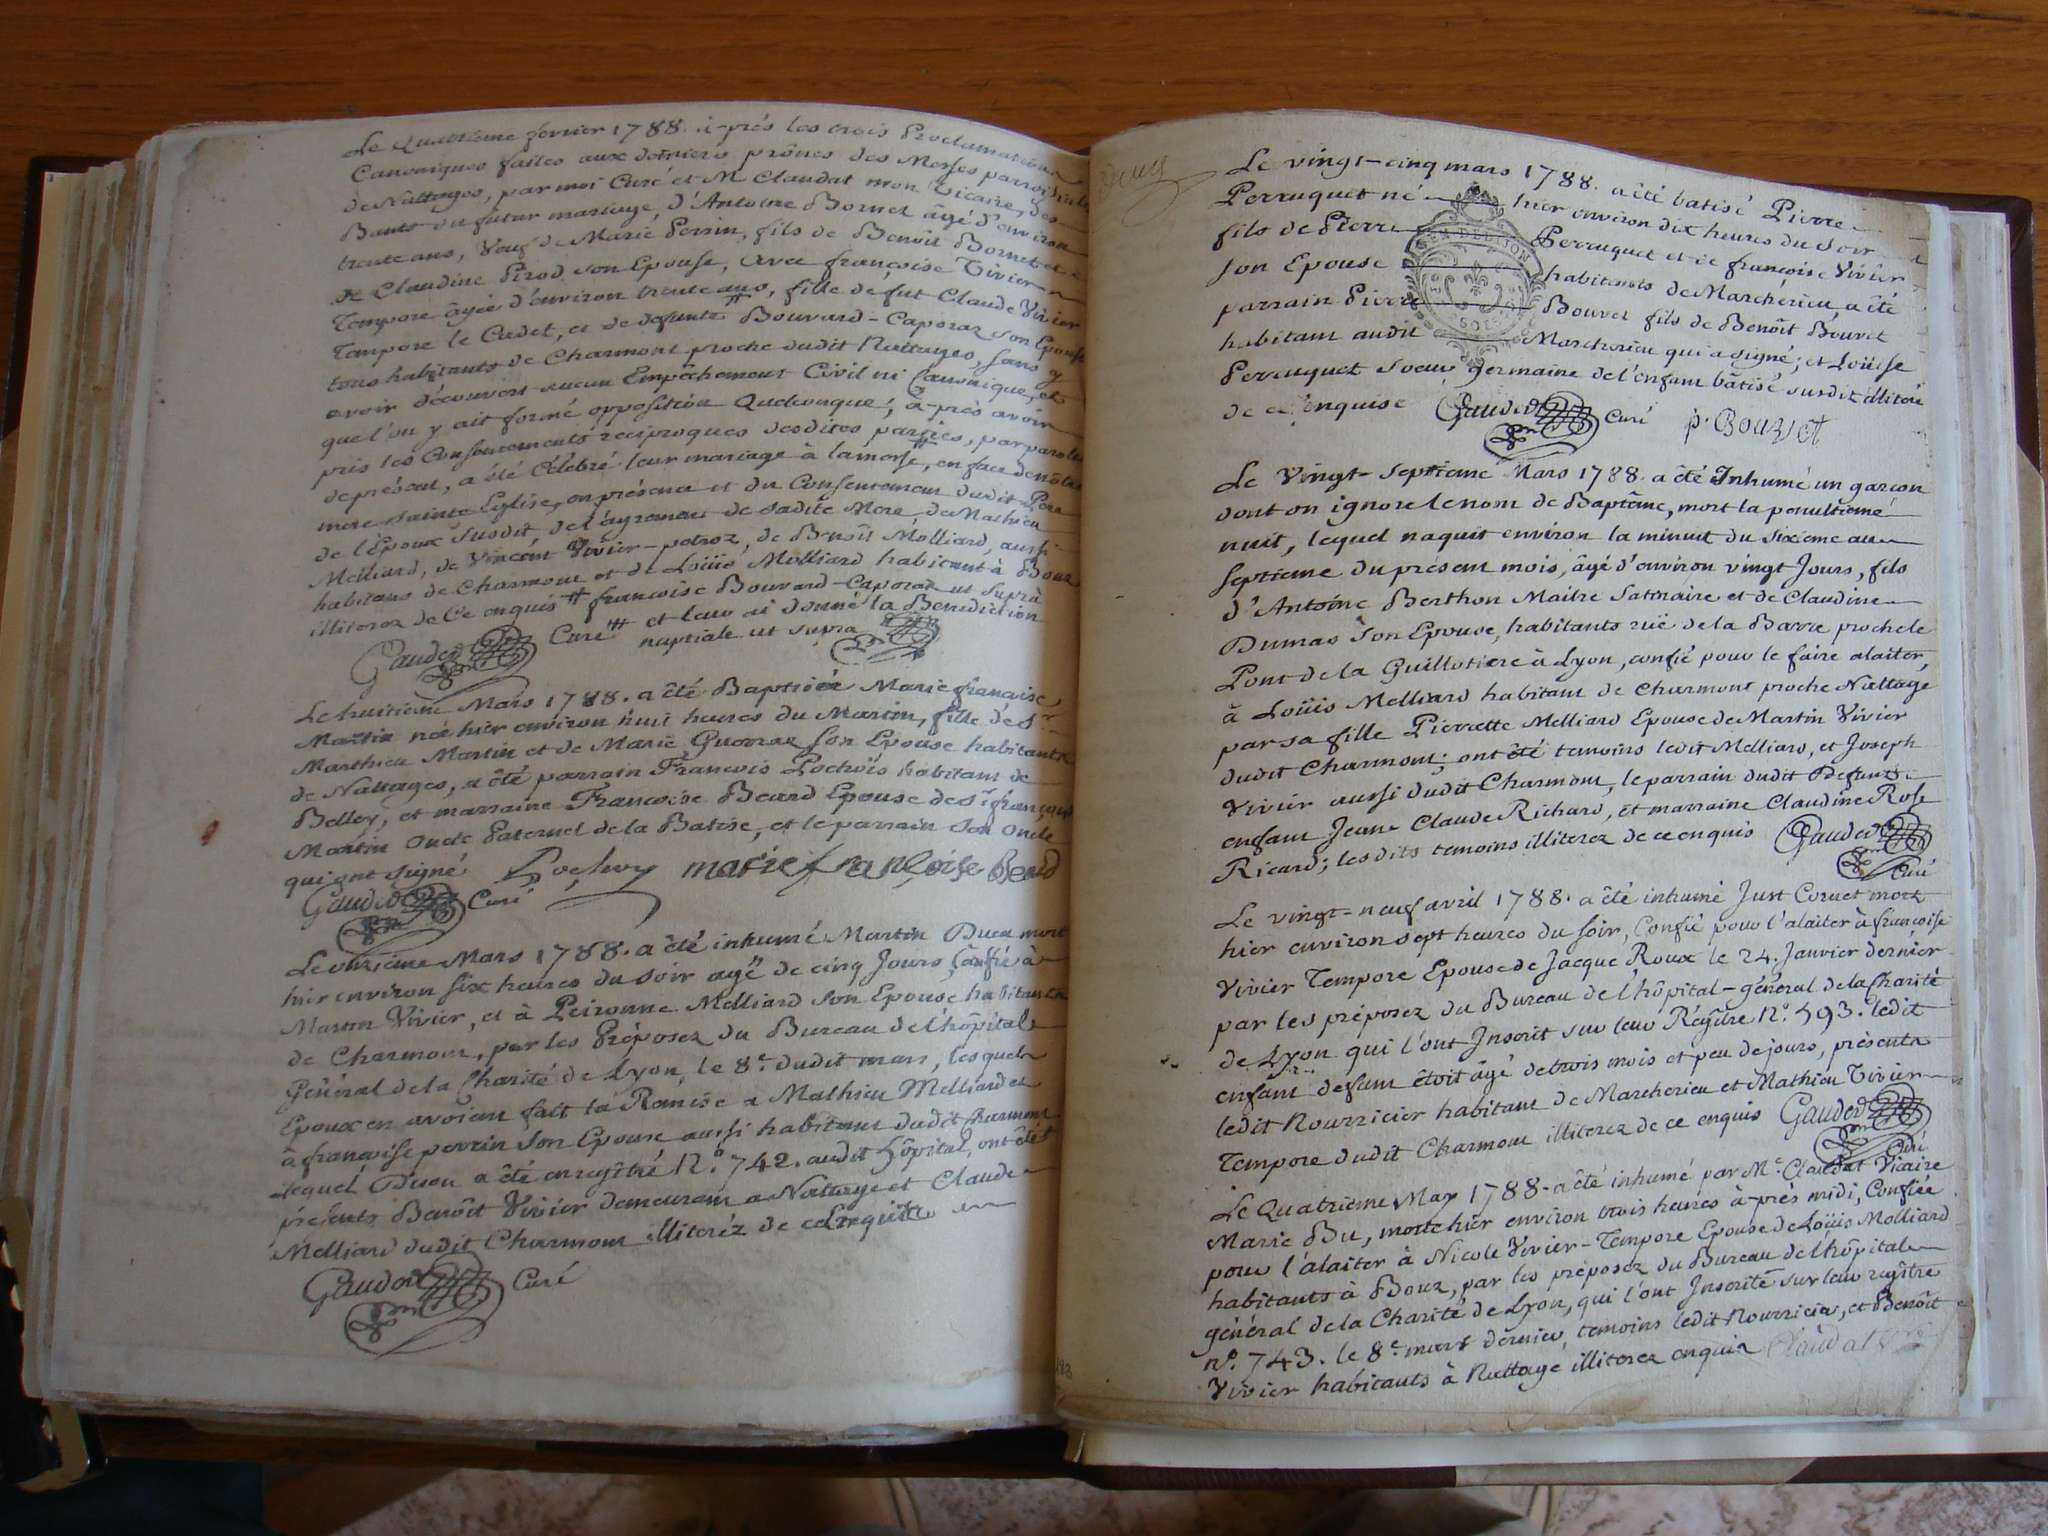 Le Quatrieme fevrier 1788. à-prés les trois Proclamations
Canoniques faites aux derniers prônes des Messes parroissiales
de Nattages, par moi Curé et M Claudat mon Vicaire, des
Bants du futur mariage, d'Antoine Bornet âgé d'environ
trente ans, Veuf de Marie Perrin, fils de Benoît Bornet et
de Claudine Pirod son Epouse, avec françoise Vivier
Tempore âgée d'environ trente ans, fille de fut Claude Vivier
Tempore le Cadet, et de defunte # Bouvard-Caporaz son Epouse
tous habitants de Charmont proche dudit Nattages, sans y
avoir découvert aucun Empêchement Civil ni Canonique, et
que l'on y ait formé opposition Quelconque; à-près avoir
pris les Consentements réciproques desdites parties, par paroles
de présent, a été Célébré leur mariage à la messe #, en face de nôtre
mere sainte Eglise, en présence et du Consentement dudit Pere
de l'Epoux susdit, de l'agrement de sadite Mere, de Mathieu
Melliard, de Vincent Vivier-potroz, de Benoît Molliard, aussi
habitans de Charmont et de Loüis Molliard habitant à Bour
illiterez de Ce enquis # françoise Bouvard-Caporaz ut suprà
Gauded Curé # et leur ai donné la Benediction
nuptiale ut supra
Le huitieme Mars 1788. a été Baptisée Marie françoise
Martin née hier environ huit heures du Matin, fille de Sr.
Matthieu Martin et de Marie Guerraz son Epouse habitants
de Nattages, a été parrain François Pochoïs habitant de
Belley, et marraine Françoise Beard Epouse de Sr. françois
Martin Oncle Paternel de la Batisée, et le parrain son Oncle
qui ont signé Pochoy marie françoise Beard
Gauded Curé
Le onzieme Mars 1788. a été inhumé Martin Ducu mort
hier environ six heures du soir agé de cinq Jours, Confié à
Martin Vivier, et à Peironne Melliard son Epouse habitants
de Charmont, par les Préposez du Bureau de l'hôpital
Général de la Charité de Lyon, le 8e. dudit mars, lesquels
Epoux en avoient fait la Remise a Mathieu Melliard et
à françoise perrin son Epouse aussi habitans dudit Charmont
lequel Ducu a été enregîtré No. 742. audit hôpital, ont étés
présents Benoît Vivier demeurant a Nattage et Claude
Melliard dudit Charmont illiteréz de ce Enquis
Gauded Curé
Le vingt-cinq mars 1788. a été batisé Pierre
Perruquet né hier environ dix heures du soir
fils de Pierre Perruquet et de françoise Vivier
son Epouse habitants de Marchérieu, a été
parrain Pierre Bouvet fils de Benoît Bouvet
habitant audit Marcherieu qui a signé; et Loüise
Perruquet soeur germaine de l'enfant bâtisé susdit iliterée
de ce enquise Gauded Curé p. Bouvet
GEN. DE DIJON
SOLS
Le Vingt-septieme Mars 1788. a été Inhumé un garçon
dont on ignore le nom de Baptême, mort la penultieme
nuit, lequel naquit environ la minuit du sixieme au
septieme du présent mois, âgé d'environ vingt Jours, fils
d'Antoine Berthon Maitre Satinaire et de Claudine
Dumas son Epouse, habitants ruë de la Barre proche le
Pont de la Guillotiere à Lyon, confié pour le faire alaiter,
à Loüis Melliard habitant de Charmont proche Nattage
par sa fille Pierrette Melliard Epouse de Martin Vivier
dudit Charmont; ont été temoins ledit Melliard, et Joseph
Vivier aussi dudit Charmont, le parrain dudit Defunt
enfant Jeane Claude Richard, et marraine Claudine Rose
Ricard; lesdits temoins illiterez de ce enquis Gauded
Curé
Le vingt-neuf avril 1788. a été inhumé Just Cornet mort
hier environ sept heures du soir, Confié pour l'alaiter à françoise
Vivier Tempore Epouse de Jacque Roux le 24. Janvier dernier
par les préposez du Bureau de l'hôpital-général de la Charité
de Lyon qui l'ont Inscrit sur leur Régître No. 593. ledit
enfant defunt étoit âgé de trois mois et peu de jours, présents
ledit Nourricier habitant de Marcherieu et Mathieu Vivier
Tempore dudit Charmont illiterez de ce enquis Gauded
Curé
Le Quatrieme May 1788. a été inhumé par Mr. Claudat Vicaire
Marie Bu, morte hier environ trois heures à-prés midi, Confiée
pour l'alaiter à Nicole Vivier-Tempore Epouse de Loüis Molliard
habitants à Bour, par les préposez du Bureau de l'hôpital
général de la Charité de Lyon, qui l'ont Inscritte sur leur regître
no. 743. le 8e. mars dernier, temoins ledit Nourricier, et Benoît
Vivier habitants à Nattage illiterez enquis Claudat